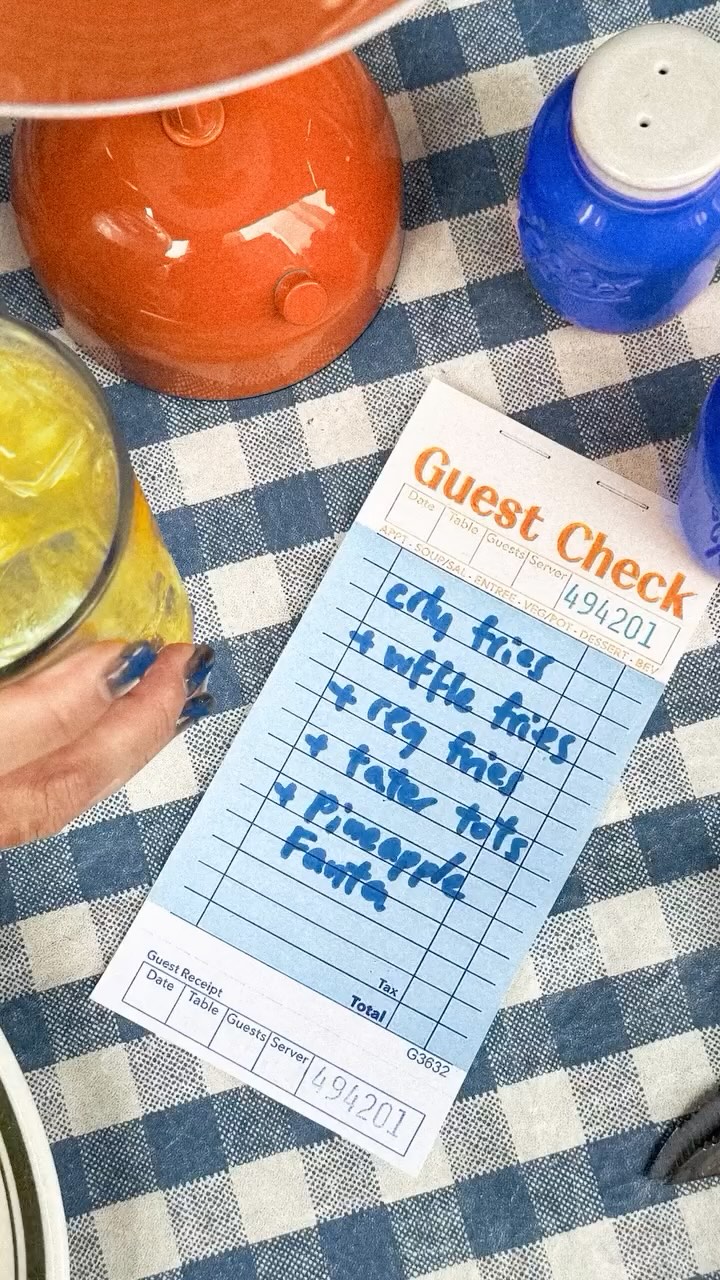 Guest Check
Date Table Guests Server 494201
APPT · SOUP/SAL · ENTREE · VEG/POT · DESSERT · BEV
crly fries
+ wffle fries
+ reg fries
+ tater tots
+ Pineapple
Fanta
Tax
Total
Guest Receipt
G3632
Date Table Guests Server 494201